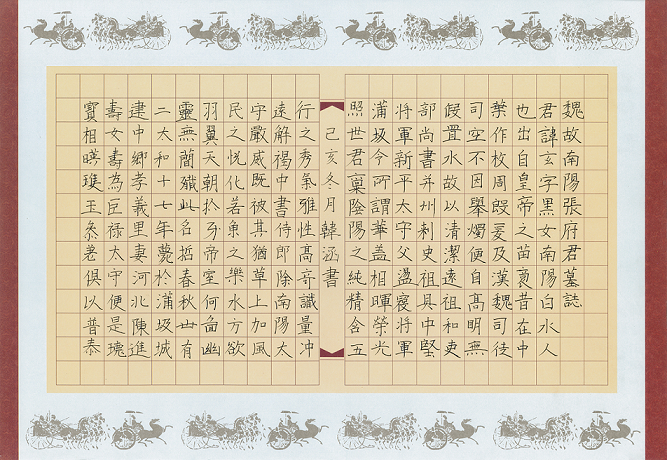 魏故南陽張府君墓誌
君諱玄字黑女南陽白水人
也出自皇帝之苗裔昔在中
葉作牧周殷爰及漢魏司徒
司空不因舉燭便自高明無
假置水故以清潔遠祖和吏
部尚書并州刺史祖具中堅
將軍新平太守父盪寇將軍
蒲坂令所謂華蓋相暉榮光
照世君稟陰陽之純精含五
己亥冬月韓涵書
行之秀氣雅性高奇識量沖
遠解褐中書侍郎除南陽太
守嚴威既被其猶草上加風
民之悅化若魚之樂水方欲
羽翼天朝抓牙帝室何啚幽
靈無簡殲此名哲春秋卅有
二太和十七年薨於蒲坂城
建中鄉孝義里妻河北陳進
壽女壽為巨祿太守便是瑰
寶相暎瓊玉叅差俱以普泰